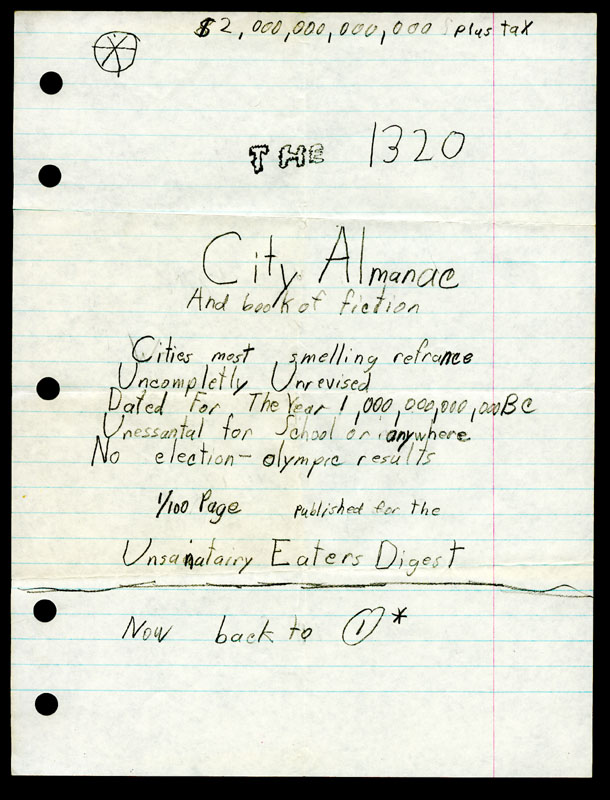 $2,000,000,000,000 plus tax
THE 1320
City Almanac
And book of fiction
Cities most smelling refrance
Uncompletly Unrevised
Dated For The Year 1,000,000,000,000 BC
Unessantal for School or anywhere
No election-olympic results
1/100 Page published for the
Unsanatairy Eaters Digest
Now back to 1*